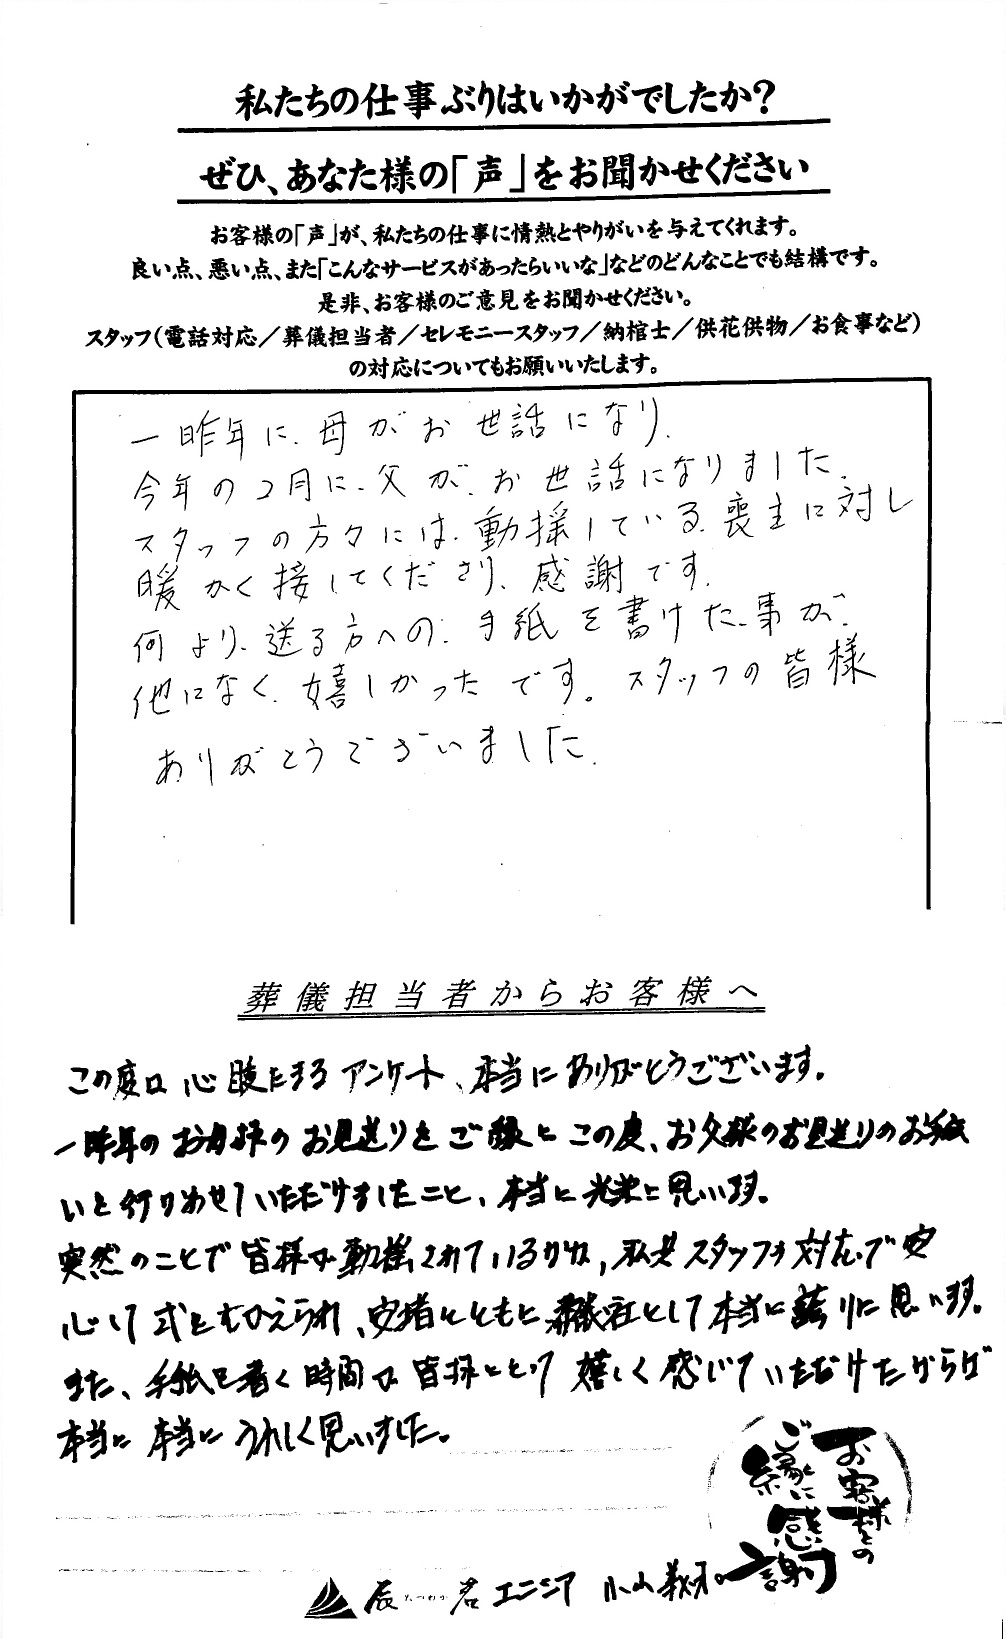 私たちの仕事ぶりはいかがでしたか?
ぜひ、あなた様の「声」をお聞かせください
お客様の「声」が、私たちの仕事に情熱とやりがいを与えてくれます。
良い点、悪い点、また「こんなサービスがあったらいいな」などのどんなことでも結構です。
是非、お客様のご意見をお聞かせください。
スタッフ(電話対応/葬儀担当者/セレモニースタッフ/納棺士/供花供物/お食事など)
の対応についてもお願いいたします。
一昨年に、母がお世話になり、
今年の2月に、父が、お世話になりました。
スタッフの方々には、動揺している、喪主に対し
暖かく接してくださり、感謝です。
何より、送る方への、手紙を書けた、事が、
他になく、嬉しかったです。スタッフの皆様
ありがとうございました。
葬儀担当者からお客様へ
この度は心暖たまるアンケート、本当にありがとうございます。
一昨年のお母様のお見送りをご縁にこの度、お父様のお見送りのお手伝
いを行わせていただけましたこと、本当に光栄に思います。
突然のことで皆様が動揺されている中、私共スタッフの対応で安
心して式をむかえられ、安堵とともに葬儀社として本当に誇りに思います。
また、手紙を書く時間が皆様にとって嬉しく感じていただけた
本当に本当にうれしく思いました。
お客様との
ご縁に
感謝
辰 たつわか 若 エニシア 小山